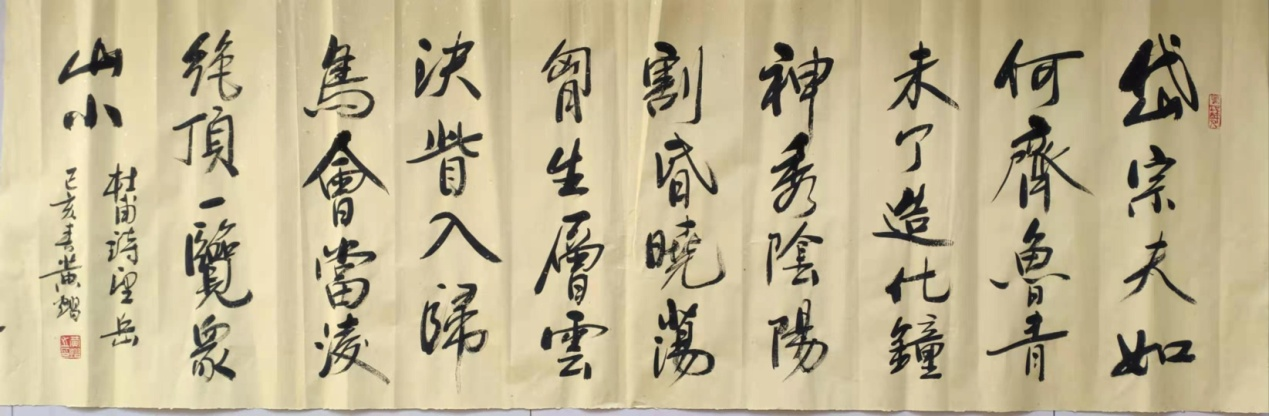 岱宗夫如
何齊魯青
未了造化鐘
神秀陰陽
割昏曉蕩
胷生層雲
決眥入歸
鳥會當凌
絶頂一覽衆
山小
杜甫詩望岳
己亥春黄